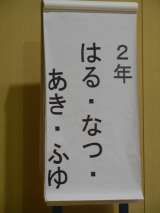 ２年
はる・なつ・
あき・ふゆ